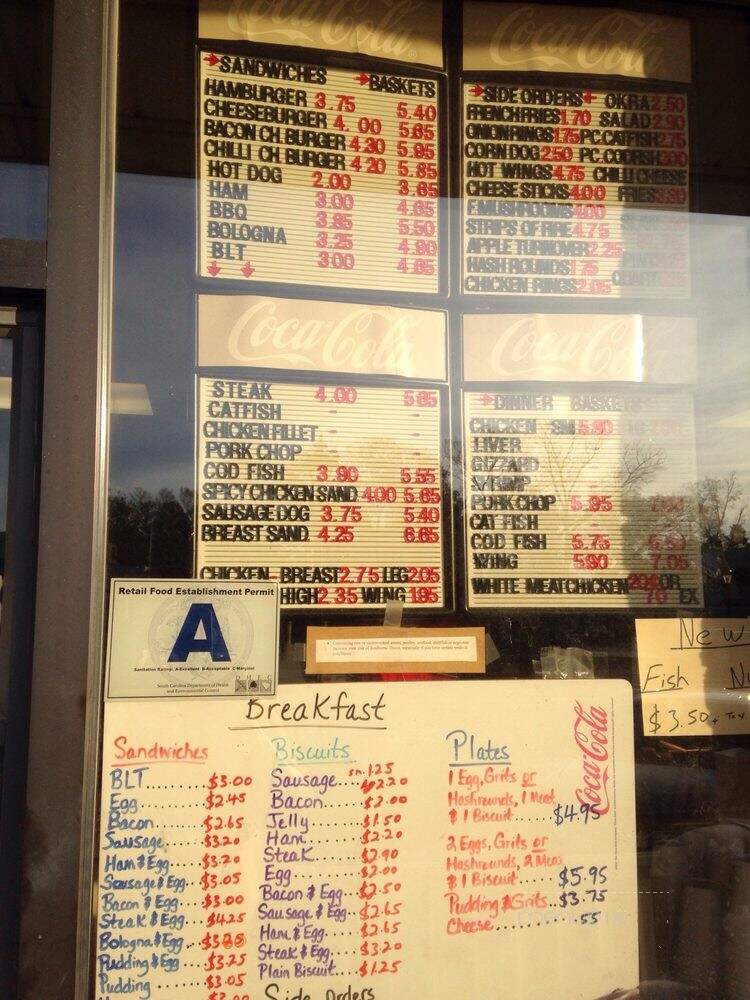 Coca-Cola
SANDWICHES BASKETS
HAMBURGER 3.75 5.40
CHEESEBURGER 4.00 5.65
BACON CH. BURGER 4.30 5.95
CHILLI CH. BURGER 4.20 5.85
HOT DOG 2.00 3.65
HAM 3.00 4.65
BBQ 3.85 5.50
BOLOGNA 3.25 4.90
BLT 3.00 4.65
Coca-Cola
SIDE ORDERS OKRA 2.50
FRENCH FRIES 1.70 SALAD 2.90
ONION RINGS 1.75 PC. CATFISH 2.75
CORN DOG 2.50 PC. CODFISH
HOT WINGS 4.75 CHILLI CHEESE
CHEESE STICKS 4.00 FRIES
F. MUSHROOMS
STRIPS OF FIRE 4.75
APPLE TURNOVER 2.25
HASH ROUNDS 1.75
CHICKEN RINGS 2.05
Coca-Cola
STEAK 4.00
CATFISH
CHICKEN FILLET
PORK CHOP
COD FISH 3.90 5.55
SPICY CHICKEN SAND. 4.00 5.65
SAUSAGE DOG 3.75 5.40
BREAST SAND. 4.25
CHICKEN - BREAST 2.75 LEG 2.05
HIGH 2.35 WING 1.95
Coca-Cola
DINNER BASKETS
CHICKEN SM
LIVER
GIZZARD
SHRIMP
PORK CHOP 5.95
CAT FISH
COD FISH 5.75
WING 5.90 7.05
WHITE MEAT CHICKEN OR
EX
Retail Food Establishment Permit
A
Sanitation Ratings: A-Excellent B-Acceptable C-Marginal
South Carolina Department of Health
and Environmental Control
DHEC
New
Fish
$3.50 + Tax
Breakfast
Sandwiches
BLT.......$3.00
Egg.......$2.45
Bacon.....$2.65
Sausage...$3.20
Ham & Egg....$3.20
Sausage & Egg..$3.05
Bacon & Egg...$3.00
Steak & Egg...$4.25
Bologna & Egg
Pudding & Egg...$3.25
Pudding.....$3.05
Biscuits
Sausage... sm. 1.25 2.20
Bacon.....$2.00
Jelly.....$1.50
Ham.....$2.20
Steak.....$2.90
Egg.....$2.00
Bacon & Egg..$2.50
Sausage & Egg..$2.65
Ham & Egg....$2.65
Steak & Egg...$3.20
Plain Biscuit...$1.25
Side Orders
Plates
1 Egg, Grits or
Hashrounds, 1 Meat
& 1 Biscuit.....$4.95
2 Eggs, Grits or
Hashrounds, 2 Meat
& 1 Biscuit.....$5.95
Pudding & Grits..$3.75
Cheese..........55
Coca-Cola